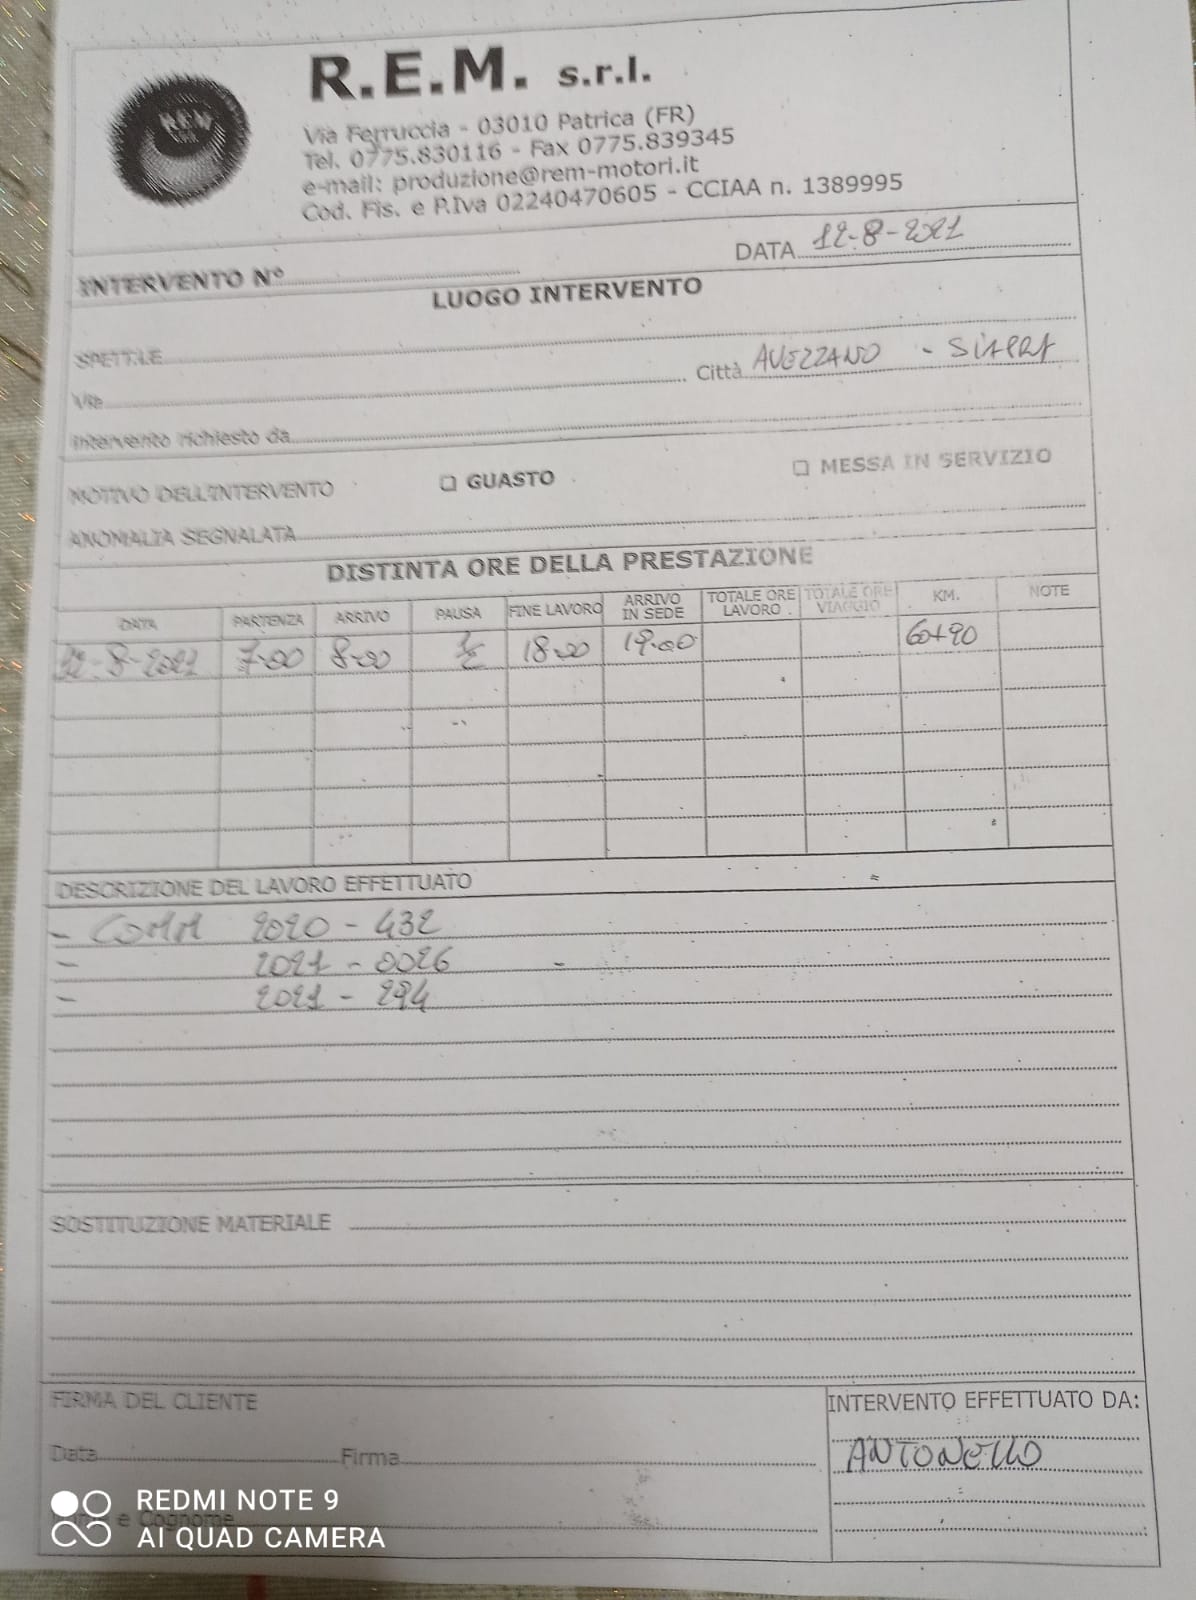 R.E.M. s.r.l.
Via Ferruccia - 03010 Patrica (FR)
Tel. 0775.830116 - Fax 0775.839345
e-mail: produzione@rem-motori.it
Cod. Fis. e P.Iva 02240470605 - CCIAA n. 1389995
INTERVENTO N° DATA 12-8-2021
LUOGO INTERVENTO
SPETT.LE
Via Città AVEZZANO - SIAPRA
Intervento richiesto da
MOTIVO DELL'INTERVENTO GUASTO MESSA IN SERVIZIO
ANOMALIA SEGNALATA
DISTINTA ORE DELLA PRESTAZIONE
DATA PARTENZA ARRIVO PAUSA FINE LAVORO ARRIVO IN SEDE TOTALE ORE LAVORO TOTALE ORE VIAGGIO KM. NOTE
12-8-2021 7.00 8.00 1/2 18.00 19.00 60+90
DESCRIZIONE DEL LAVORO EFFETTUATO
- COMM 2020 - 432
- 2021 - 0026 -
- 2021 - 294
SOSTITUZIONE MATERIALE
FIRMA DEL CLIENTE INTERVENTO EFFETTUATO DA:
Data Firma ANTONELLO
e Cognome
REDMI NOTE 9
AI QUAD CAMERA